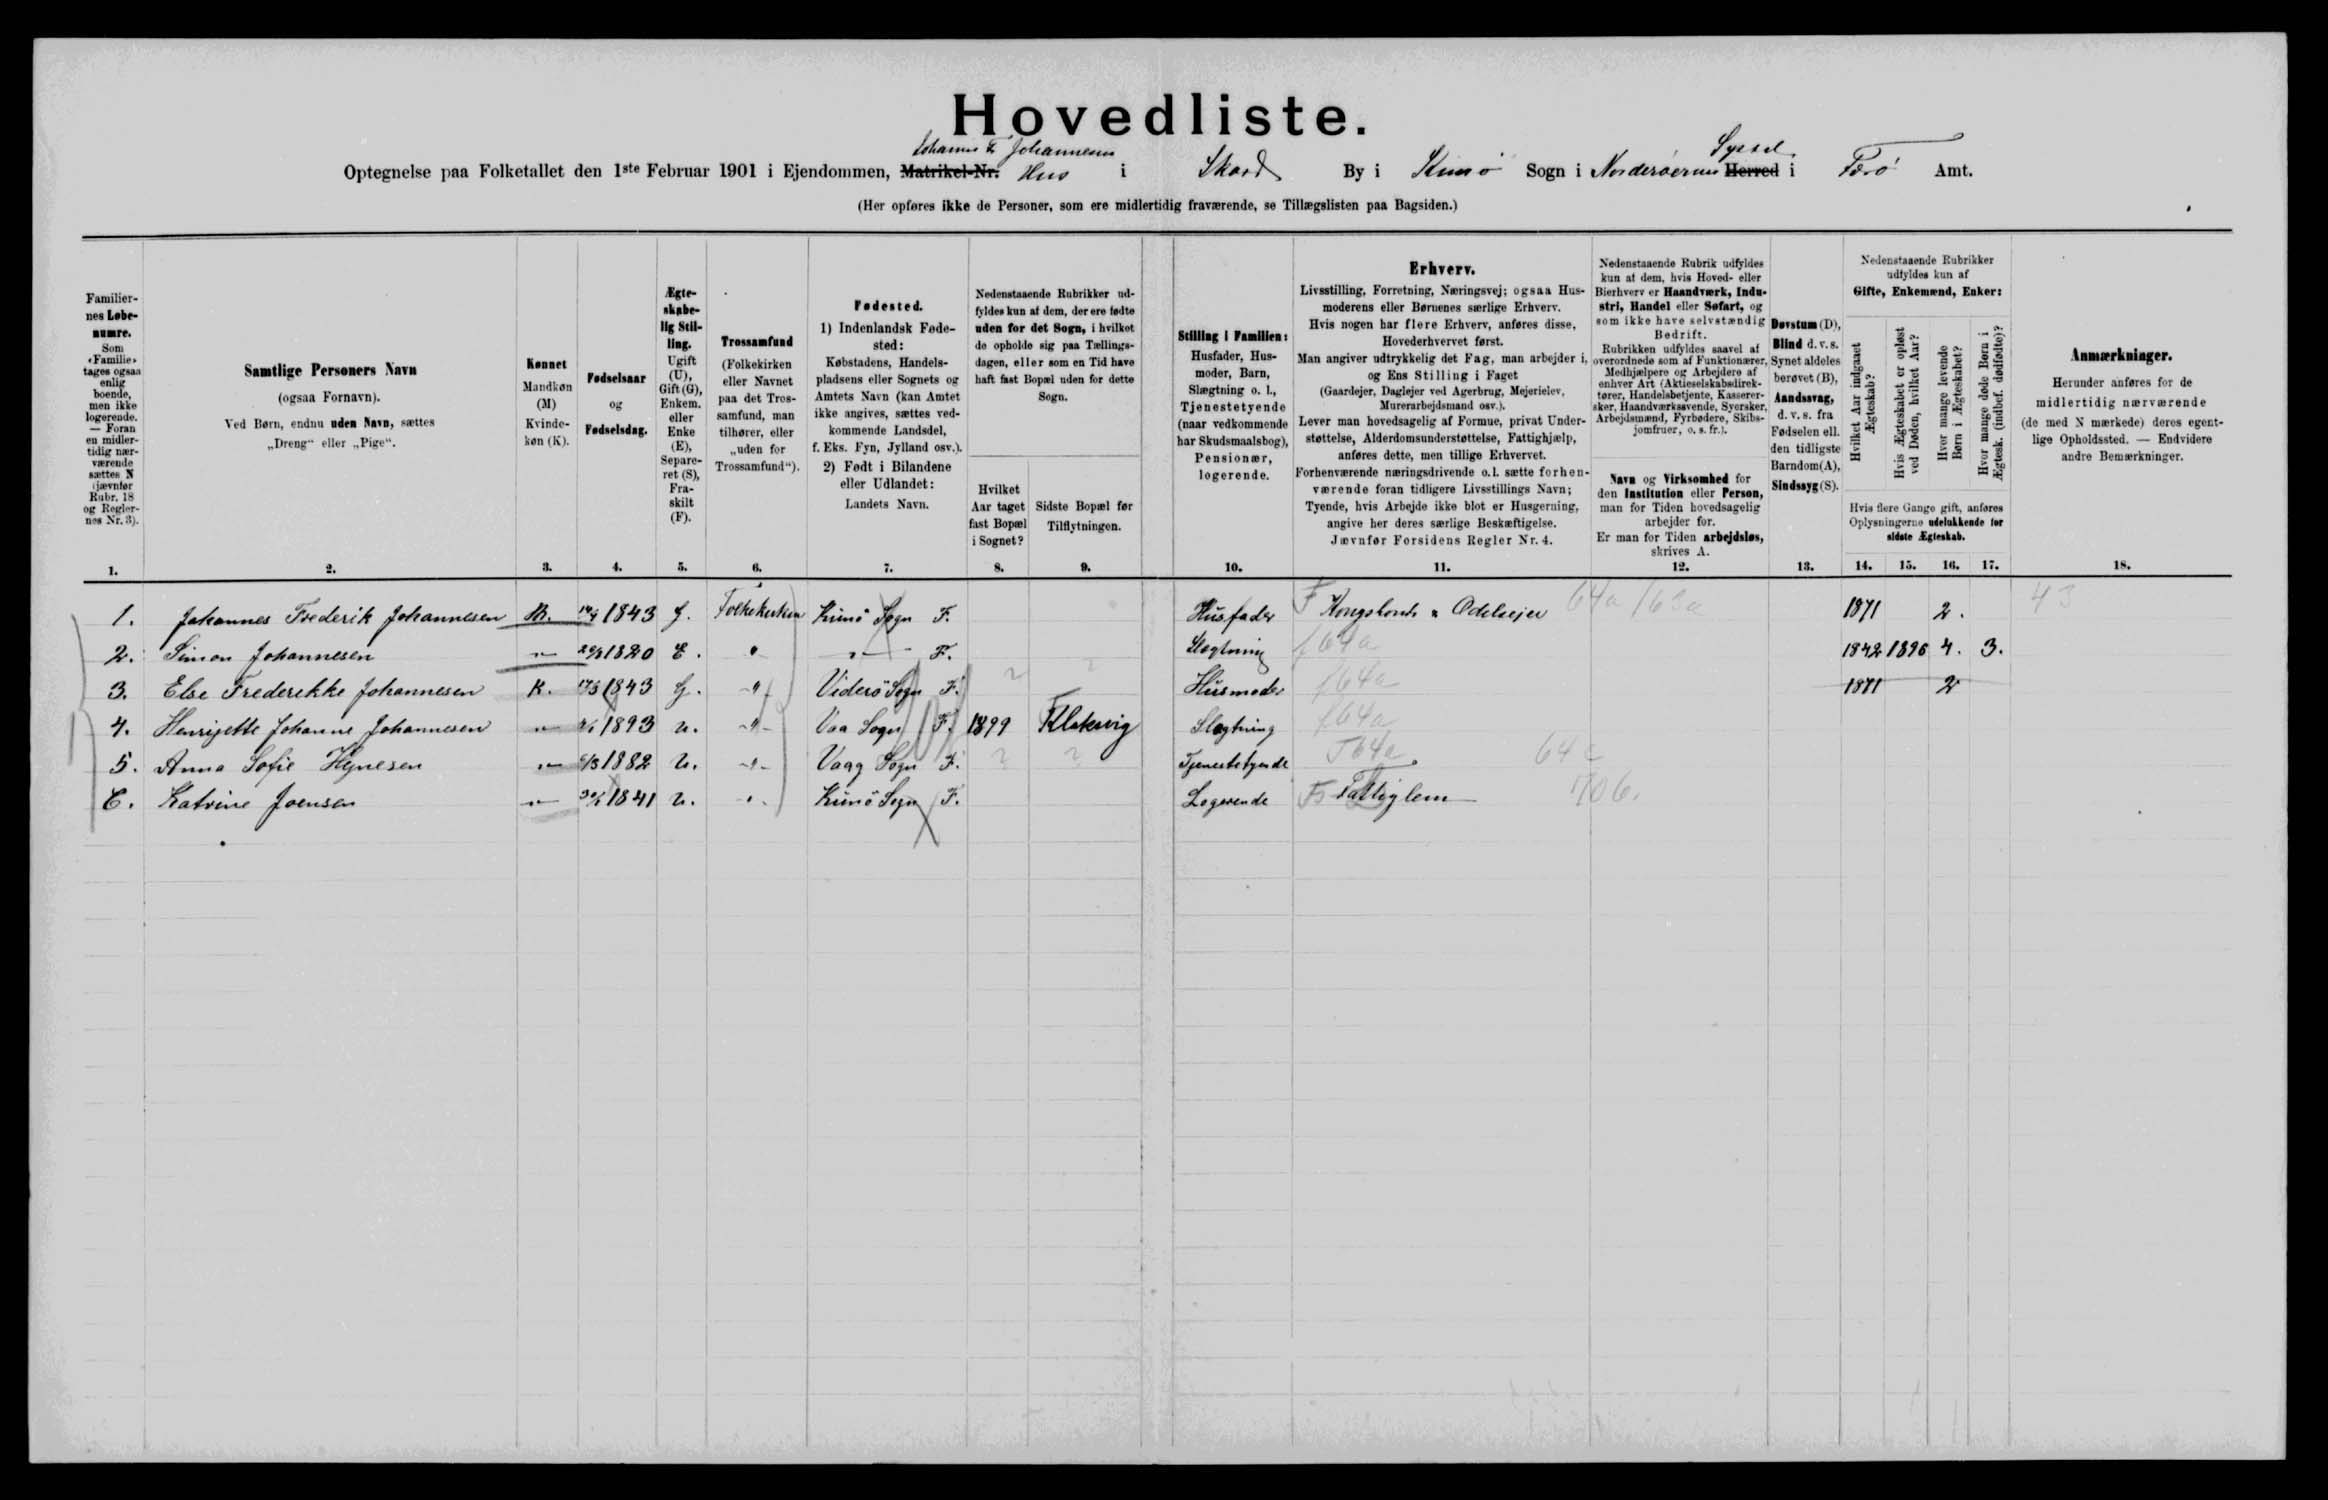 Hovedliste.
Johannes F. Johannesens Syssel
Optegnelse paa Folketallet den 1ste Februar 1901 i Ejendommen, Matrikel-Nr. Hus i Skard By i Kunø Sogn i Norderøernes Herred i Færø Amt.
(Her opføres ikke de Personer, som ere midlertidig fraværende, se Tillægslisten paa Bagsiden.)
Familier-
nes Løbe-
numre.
Som
«Familie»
tages ogsaa
enlig
boende,
men ikke
logerende.
— Foran
en midler-
tidig nær-
værende
sættes N
(jævnfør
Rubr. 18
og Regler-
nes Nr. 3).
1.
Samtlige Personers Navn
(ogsaa Fornavn).
Ved Børn, endnu uden Navn, sættes
„Dreng“ eller „Pige“.
2.
Kønnet
Mandkøn
(M)
Kvinde-
køn (K).
3.
Fødselsaar
og
Fødselsdag.
4.
Ægte-
skabe-
lig Stil-
ling.
Ugift
(U),
Gift (G),
Enkem.
eller
Enke
(E),
Separe-
ret (S),
Fra-
skilt
(F).
5.
Trossamfund
(Folkekirken
eller Navnet
paa det Tros-
samfund, man
tilhører, eller
„uden for
Trossamfund“).
6.
Fødested.
1) Indenlandsk Føde-
sted:
Købstadens, Handels-
pladsens eller Sognets og
Amtets Navn (kan Amtet
ikke angives, sættes ved-
kommende Landsdel,
f. Eks. Fyn, Jylland osv.).
2) Født i Bilandene
eller Udlandet:
Landets Navn.
7.
Nedenstaaende Rubrikker ud-
fyldes kun af dem, der ere fødte
uden for det Sogn, i hvilket
de opholde sig paa Tællings-
dagen, eller som en Tid have
haft fast Bopæl uden for dette
Sogn.
Hvilket
Aar taget
fast Bopæl
i Sognet?
8.
Sidste Bopæl før
Tilflytningen.
9.
Stilling i Familien:
Husfader, Hus-
moder, Barn,
Slægtning o. l.,
Tjenestetyende
(naar vedkommende
har Skudsmaalsbog),
Pensionær,
logerende.
10.
Erhverv.
Livsstilling, Forretning, Næringsvej; ogsaa Hus-
moderens eller Børnenes særlige Erhverv.
Hvis nogen har flere Erhverv, anføres disse,
Hovederhvervet først.
Man angiver udtrykkelig det Fag, man arbejder i,
og Ens Stilling i Faget
(Gaardejer, Daglejer ved Agerbrug, Mejerielev,
Murerarbejdsmand osv.).
Lever man hovedsagelig af Formue, privat Under-
støttelse, Alderdomsunderstøttelse, Fattighjælp,
anføres dette, men tillige Erhvervet.
Forhenværende næringsdrivende o. l. sætte forhen-
værende foran tidligere Livsstillings Navn;
Tyende, hvis Arbejde ikke blot er Husgerning,
angive her deres særlige Beskæftigelse.
Jævnfør Forsidens Regler Nr. 4.
11.
Nedenstaaende Rubrik udfyldes
kun af dem, hvis Hoved- eller
Bierhverv er Haandværk, Indu-
stri, Handel eller Søfart, og
som ikke have selvstændig
Bedrift.
Rubrikken udfyldes saavel af
overordnede som af Funktionærer,
Medhjælpere og Arbejdere af
enhver Art (Aktieselskabsdirek-
tører, Handelsbetjente, Kasserer-
sker, Haandværkssvende, Syersker,
Arbejdsmænd, Fyrbødere, Skibs-
jomfruer, o. s. fr.).
Navn og Virksomhed for
den Institution eller Person,
man for Tiden hovedsagelig
arbejder for.
Er man for Tiden arbejdsløs,
skrives A.
12.
Døvstum (D),
Blind d. v. s.
Synet aldeles
berøvet (B),
Aandssvag,
d. v. s. fra
Fødselen ell.
den tidligste
Barndom (A),
Sindssyg (S).
13.
Nedenstaaende Rubrikker
udfyldes kun af
Gifte, Enkemænd, Enker:
Hvilket Aar indgaaet
Ægteskab?
Hvis Ægteskabet er opløst
ved Døden, hvilket Aar?
Hvor mange levende
Børn i Ægteskabet?
Hvor mange døde Børn i
Ægtesk. (indbef. dødfødte)?
Hvis flere Gange gift, anføres
Oplysningerne udelukkende for
sidste Ægteskab.
14. 15. 16. 17.
Anmærkninger.
Herunder anføres for de
midlertidig nærværende
(de med N mærkede) deres egent-
lige Opholdssted. — Endvidere
andre Bemærkninger.
18.
1. Johannes Frederik Johannesen M. 1843 G. Folkekirken Kunø Sogn F. Husfader F Kongsbonde & Odelsejer 64a/63a 1871 2. 43
2. Simon Johannesen " 1820 E. " " F. Slægtning f64a 1842 1896 4. 3.
3. Else Frederikke Johannesen K. 1843 G. " Viderø Sogn F. ? ? Husmoder f64a 1871 2
4. Henrijette Johanne Johannesen " 1893 U. " Vaa Sogn F. 1899 Klaksvig Slægtning f64a
5. Anna Sofie Hejnesen " 1882 U. " Vaag Sogn F. ? ? Tjenestetyende T64a 64a
6. Katrine Joensen " 1841 U. " Kunø Sogn F. Logerende Fattiglem 706.